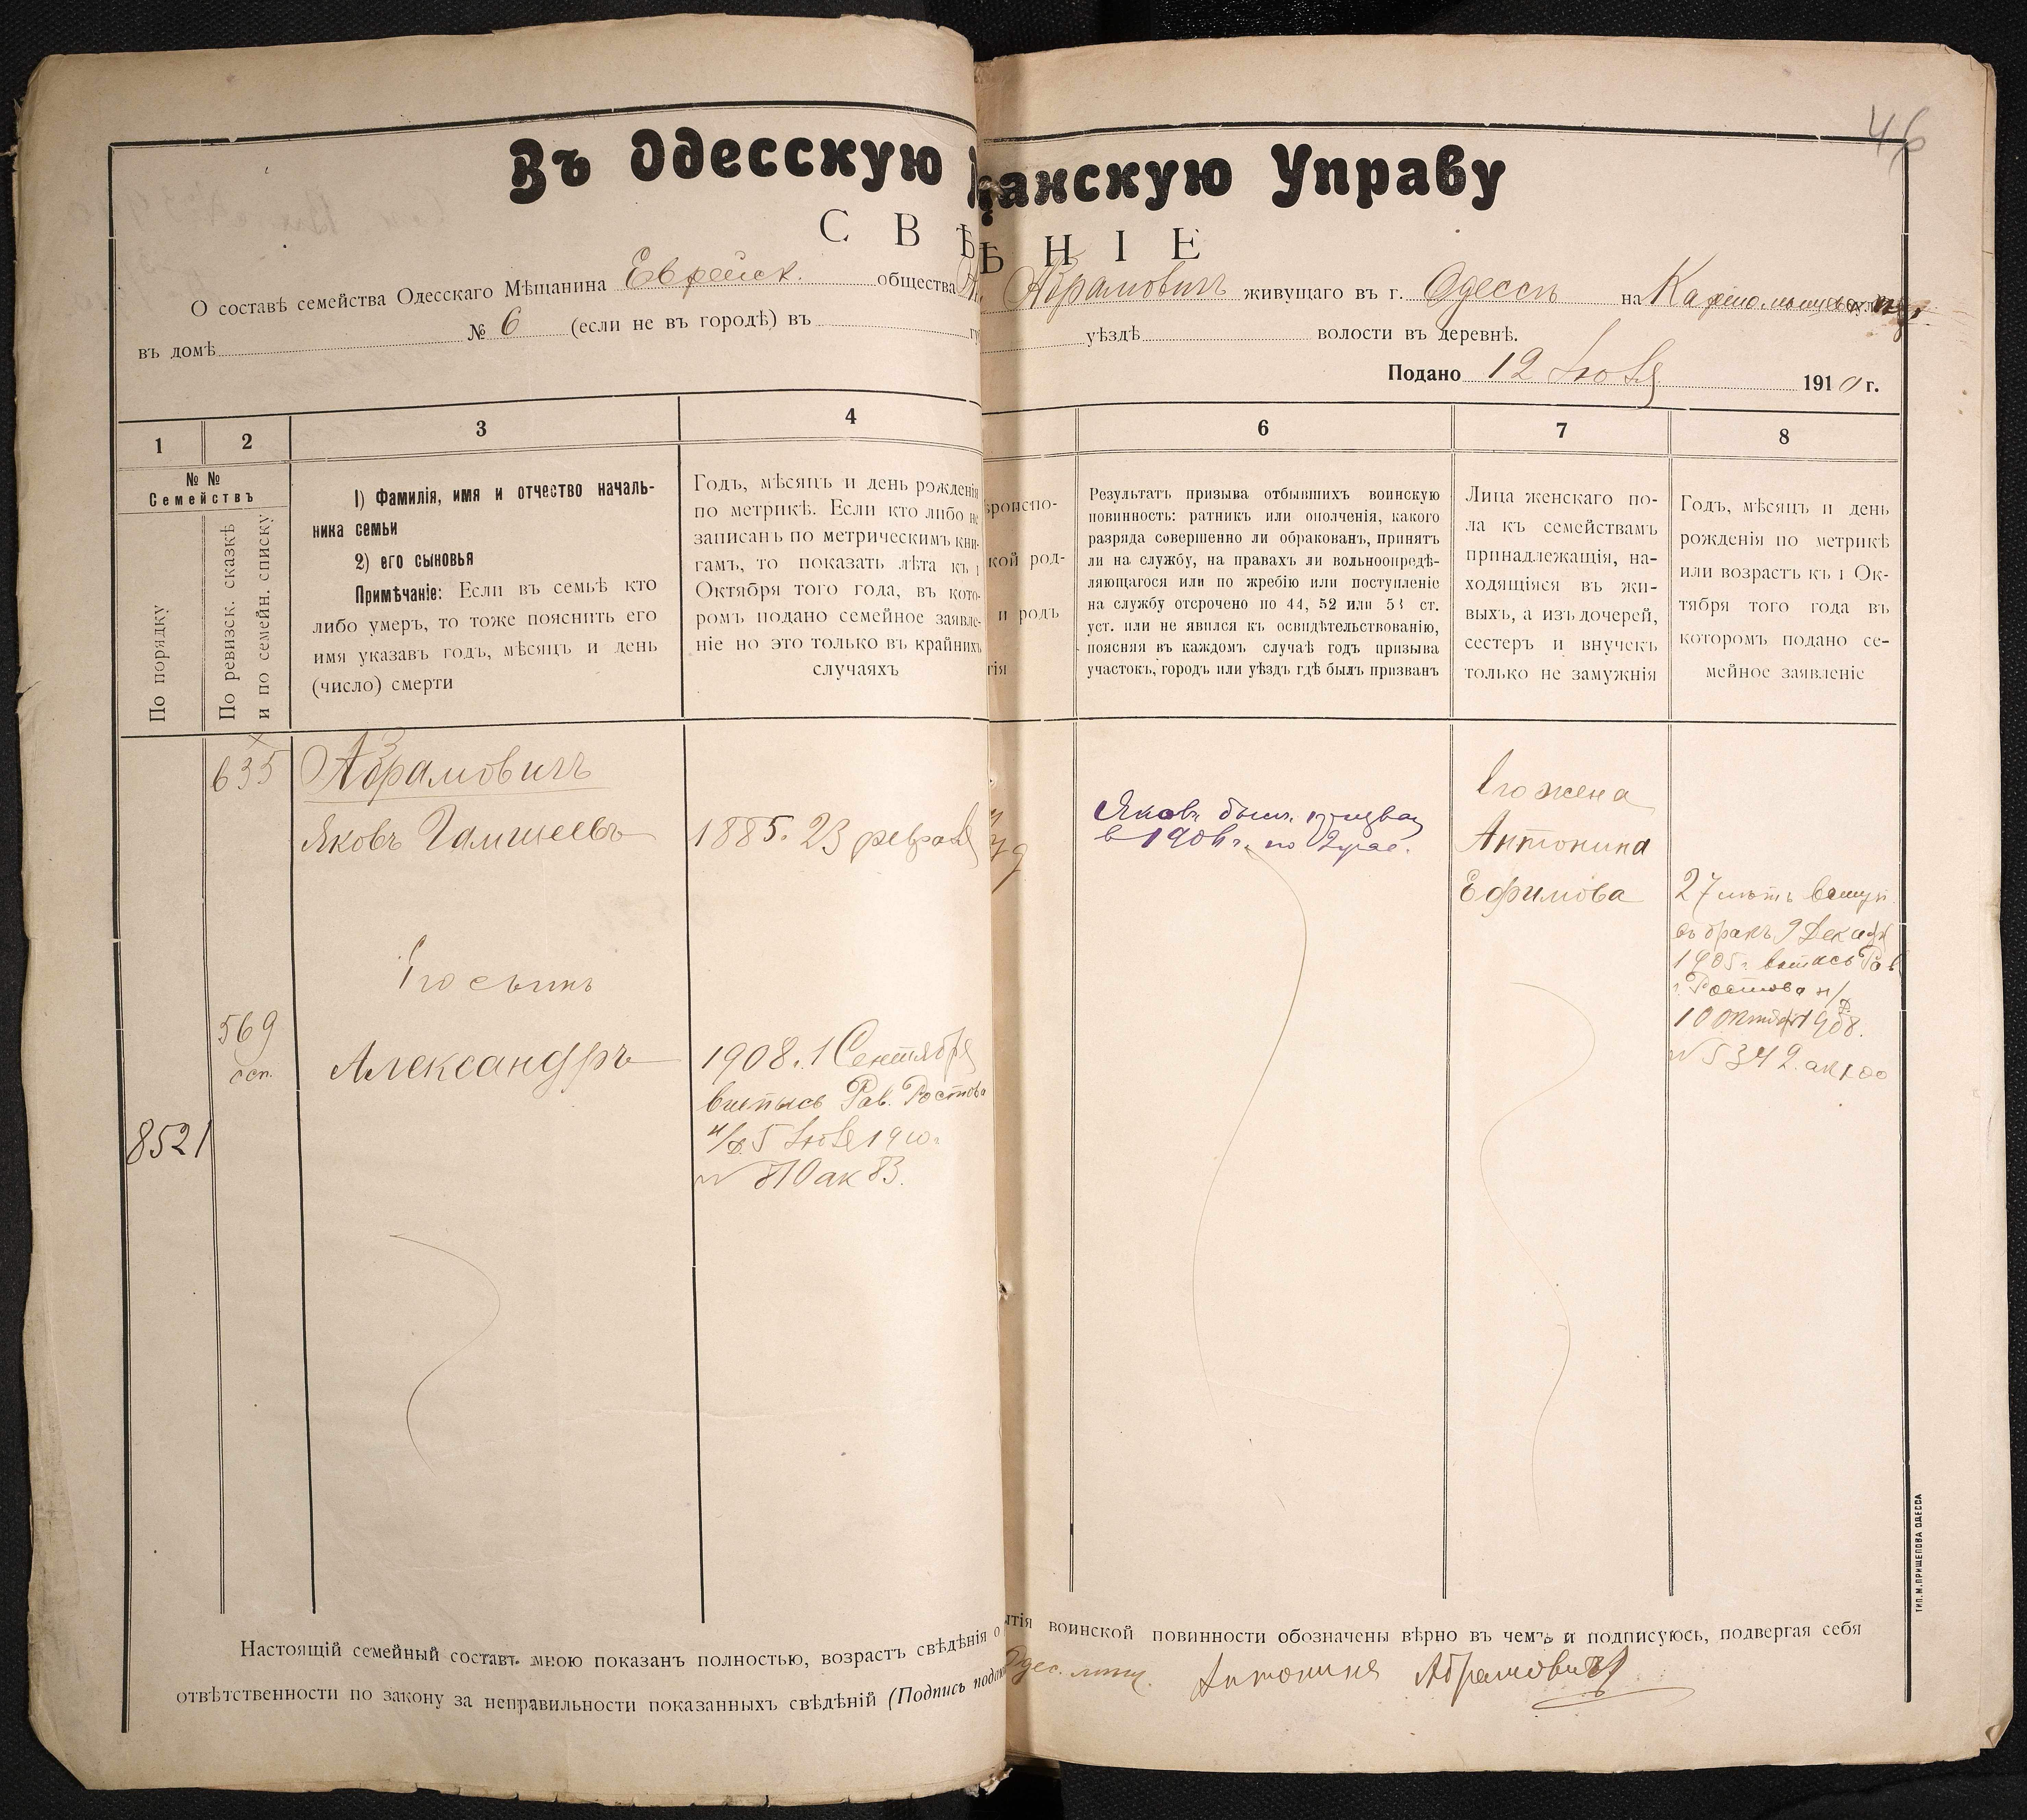 46
Въ Одесскую
щанскую Управу
С В Ѣ
Ѣ Н І Е
О составѣ семейства Одесскаго Мѣщанина Еврейск. общества
Абрамовичъ живущаго въ г. Одессѣ на
въ домѣ № 6 (если не въ городѣ) въ
уѣздѣ волости въ деревнѣ.
Подано 12 Іюля 1910 г.
1
2
3
4
6
7
8
№ №
Семействъ
По порядку
По ревизск. сказкѣ
и по семейн. списку
1) Фамилія, имя и отчество началь-
ника семьи
2) его сыновья
Примѣчаніе: Если въ семьѣ кто
либо умеръ, то тоже пояснить его
имя указавъ годъ, мѣсяцъ и день
(число) смерти
Годъ, мѣсяцъ и день рожденія
по метрикѣ. Если кто либо не
записанъ по метрическимъ кни-
гамъ, то показать лѣта къ 1
Октября того года, въ кото-
ромъ подано семейное заявле-
ніе но это только въ крайнихъ
случаяхъ
ѣроиспо-
кой род-
и родъ
тія
Результатъ призыва отбывшихъ воинскую
повинность: ратникъ или ополченія, какого
разряда совершенно ли обракованъ, принятъ
ли на службу, на правахъ ли вольноопредѣ-
ляющагося или по жребію или поступленіе
на службу отсрочено по 44, 52 или 53 ст.
уст. или не явился къ освидѣтельствованію,
поясняя въ каждомъ случаѣ годъ призыва
участокъ, городъ или уѣздъ гдѣ былъ призванъ
Лица женскаго по-
ла къ семействамъ
принадлежащія, на-
ходящіяся въ жи-
выхъ, а изъ дочерей,
сестеръ и внучекъ
только не замужнія
Годъ, мѣсяцъ и день
рожденія по метрикѣ
или возрастъ къ 1 Ок-
тября того года въ
которомъ подано се-
мейное заявленіе
635
Абрамовичъ
Яковъ Гамшеевъ
1885. 23 февраля
Яковъ был. призван
в 1906 г. по 2 учас.
Его жена
Антонина
Ефимова
27 лѣтъ вступ.
въ бракъ 9 Декабя
1905 г. выпись Рав
г. Ростова н/Д
10 октября 1908.
№ 5342. ак 100
Его сынъ
569
осп.
Александръ
1908. 1 Сентября
выпись Рав. Ростова
н/Д. 5 Іюля 1910 г.
№ 810 ак 83.
8521
Настоящій семейный составъ мною показанъ полностью, возрастъ свѣдѣнія о
ытія воинской повинности обозначены вѣрно въ чемъ и подписуюсь, подвергая себя
отвѣтственности по закону за неправильности показанныхъ свѣдѣній (Подпись
Одес. мѣщ. Антонина Абрамовичъ
ТИП. М. ПРИЩЕПОВА ОДЕССА